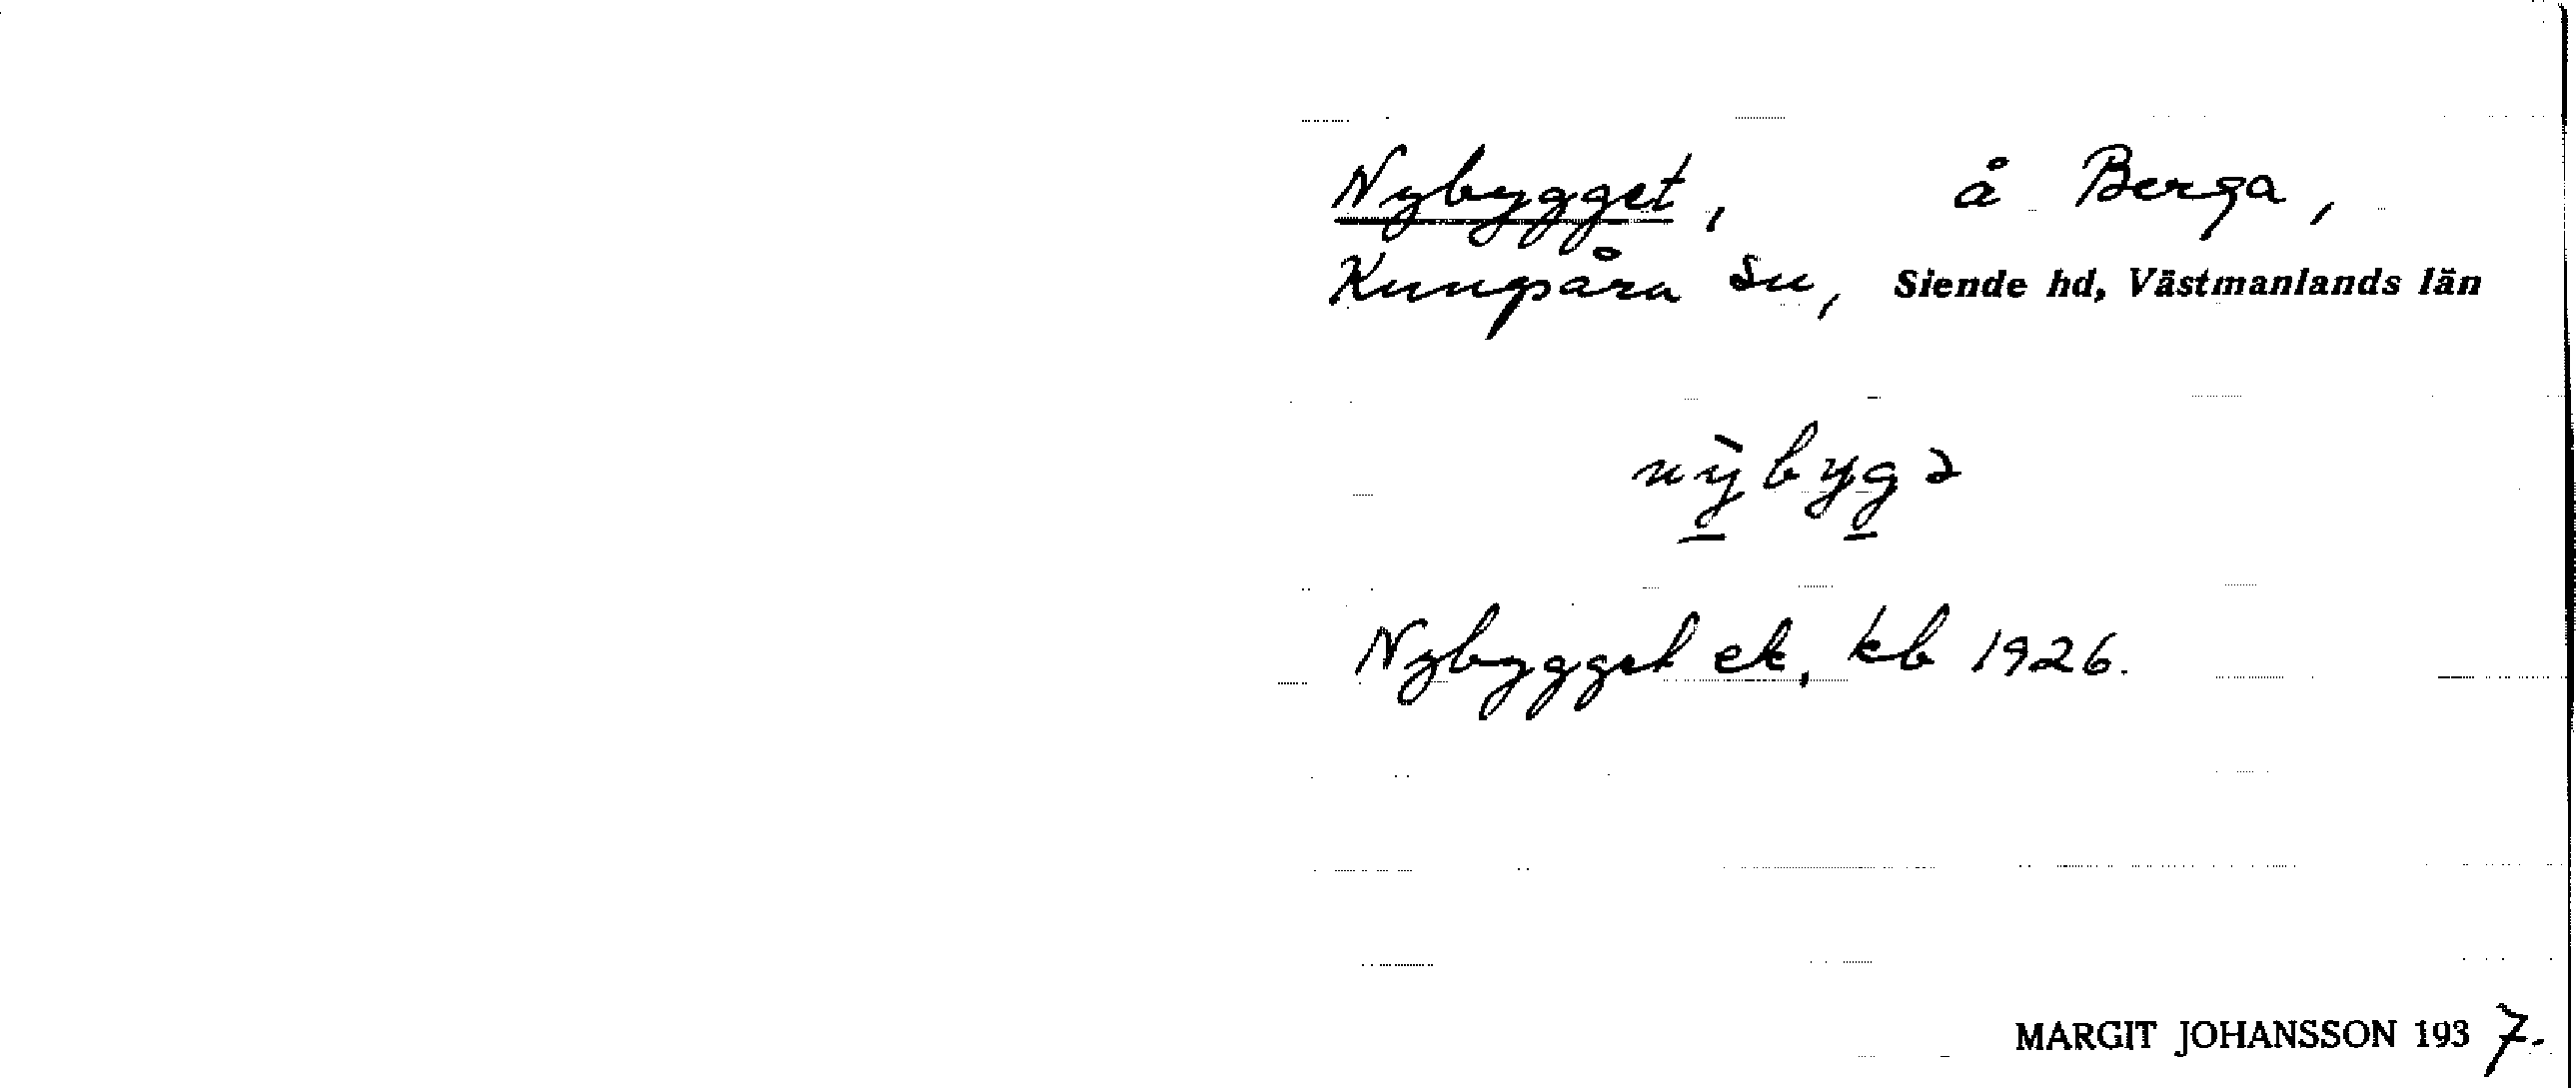 Nybygget, å Berga,
Kungsåra sn, Siende hd, Västmanlands län
nỳbygə
Nybygget ek, kb 1926.
MARGIT JOHANSSON 1937.